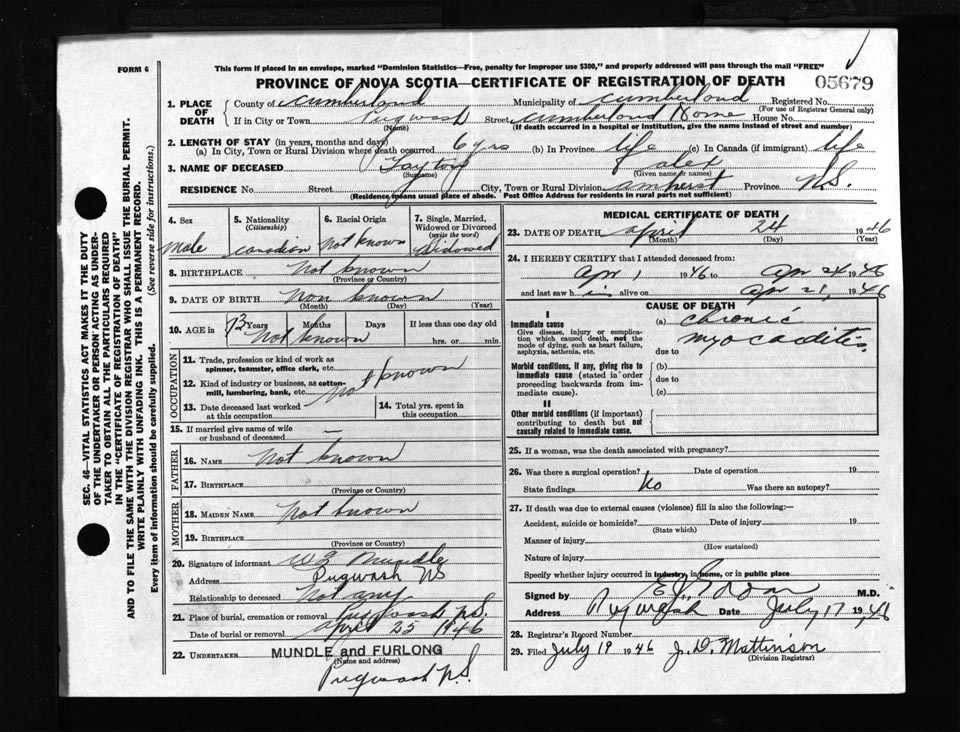 FORM 6
This form if placed in an envelope, marked "Dominion Statistics—Free, penalty for improper use $300," and properly addressed will pass through the mail "FREE"
PROVINCE OF NOVA SCOTIA—CERTIFICATE OF REGISTRATION OF DEATH
05679
1. PLACE OF DEATH
County of Cumberland Municipality of Cumberland Registered No.
(For use of Registrar General only)
If in City or Town Pugwash Street Cumberland Home House No.
(Name) (If death occurred in a hospital or institution, give the name instead of street and number)
2. LENGTH OF STAY (in years, months and days)
(a) In City, Town or Rural Division where death occurred 6 yrs (b) In Province life (c) In Canada (if immigrant) life
3. NAME OF DECEASED Alex
(Surname) (Given name or names)
RESIDENCE No. Street City, Town or Rural Division Amherst Province N.S.
(Residence means usual place of abode. Post Office Address for residents in rural parts not sufficient)
4. Sex
male
5. Nationality
(Citizenship)
Canadian
6. Racial Origin
Not known
7. Single, Married, Widowed or Divorced
(write the word)
Widowed
8. BIRTHPLACE Not known
(Province or Country)
9. DATE OF BIRTH Non known
(Month) (Day) (Year)
10. AGE in 73 Years Months Days If less than one day old
Not known hrs. or min.
OCCUPATION
11. Trade, profession or kind of work as spinner, teamster, office clerk, etc.
12. Kind of industry or business, as cotton-mill, lumbering, bank, etc. Not known
13. Date deceased last worked at this occupation
14. Total yrs. spent in this occupation
15. If married give name of wife or husband of deceased —
FATHER
16. NAME Not known
17. BIRTHPLACE
(Province or Country)
MOTHER
18. MAIDEN NAME Not known
19. BIRTHPLACE
(Province or Country)
20. Signature of informant Mundle
Address Pugwash NS
Relationship to deceased Not any
21. Place of burial, cremation or removal Pugwash N.S.
Date of burial or removal April 25 1946
22. UNDERTAKER MUNDLE and FURLONG
(Name and address)
Pugwash N.S.
MEDICAL CERTIFICATE OF DEATH
23. DATE OF DEATH April 24 1946
(Month) (Day) (Year)
24. I HEREBY CERTIFY that I attended deceased from:
Apr 1 1946 to Apr 24 1946
and last saw him alive on Apr 21, 1946
CAUSE OF DEATH
I
Immediate cause
Give disease, injury or complication which caused death, not the mode of dying, such as heart failure, asphyxia, asthenia, etc.
(a) Chronic
myocaditis
due to
Morbid conditions, if any, giving rise to immediate cause (stated in order proceeding backwards from immediate cause).
(b)
due to
(c)
II
Other morbid conditions (if important) contributing to death but not causally related to immediate cause.
25. If a woman, was the death associated with pregnancy?
26. Was there a surgical operation? Date of operation 19
State findings No Was there an autopsy?
27. If death was due to external causes (violence) fill in also the following:—
Accident, suicide or homicide? Date of injury 19
(State which)
Manner of injury
(How sustained)
Nature of injury
Specify whether injury occurred in industry, in home, or in public place
Signed by M.D.
Address Pugwash Date July 17 1946
28. Registrar's Record Number
29. Filed July 19 1946 J. D. Mattinson
(Division Registrar)
SEC. 46—VITAL STATISTICS ACT MAKES IT THE DUTY
OF THE UNDERTAKER OR PERSON ACTING AS UNDER-
TAKER TO OBTAIN ALL THE PARTICULARS REQUIRED
IN THE "CERTIFICATE OF REGISTRATION OF DEATH"
AND TO FILE THE SAME WITH THE DIVISION REGISTRAR WHO SHALL ISSUE THE BURIAL PERMIT.
WRITE PLAINLY WITH UNFADING INK. THIS IS A PERMANENT RECORD.
Every item of information should be carefully supplied. (See reverse side for instructions.)